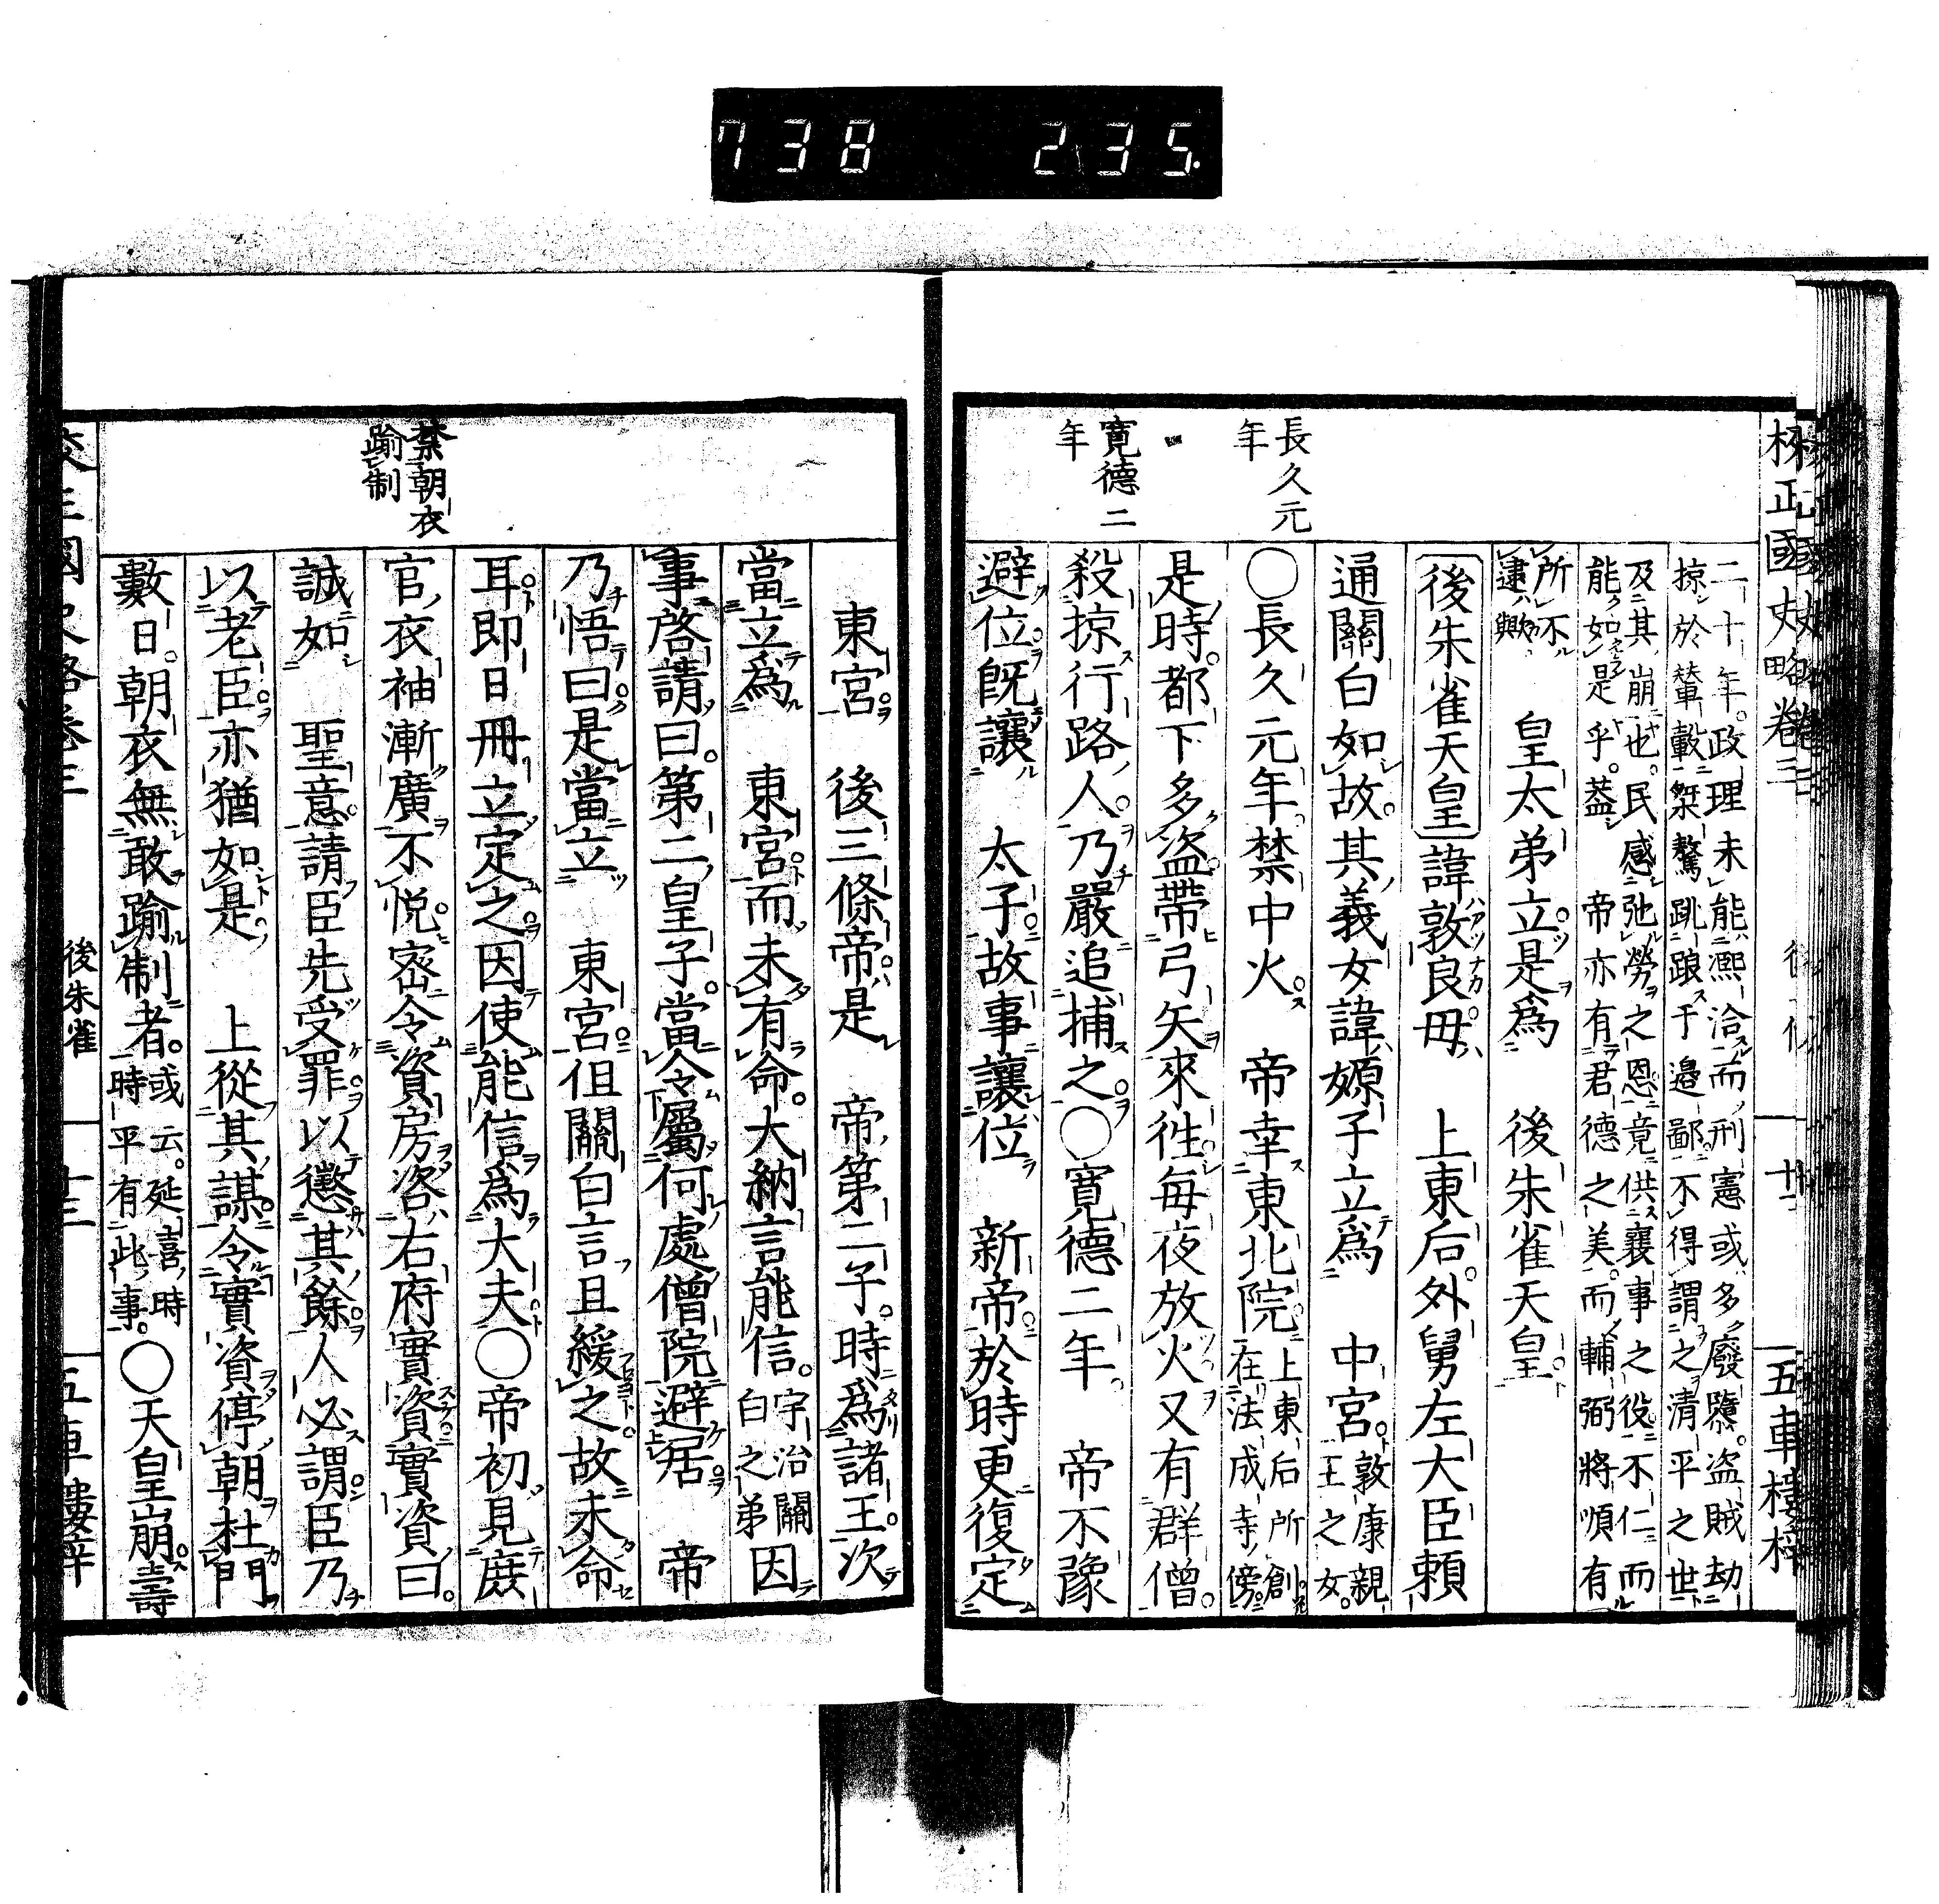 738 235
標正國史略卷三 五車樓梓
長久元年
寬德二年
二十年。政理未能凞洽而刑憲或多廢隳。盜賊劫
掠於輦轂桀驁跳踉于邊鄙不得謂之清平之世
及其崩也。民感弛勞之恩竟供襄事之役不仁而
能如是乎。葢 帝亦有君德之美。而輔弼將順有
所不
逮歟 皇太弟立是爲 後朱雀天皇
後朱雀天皇 諱敦良毋 上東后。外舅左大臣賴
通關白如故。其義女諱嫄子立爲 中宮。敦康親王之女。
○長久元年。禁中火。 帝幸東北院。上東后所創在法成寺傍。
是時。都下多盜。帶弓矢來徃每夜放火又有群僧。
殺掠行路人。乃嚴追捕之。○寬德二年。 帝不豫
避位旣讓 太子故事讓位 新帝於時更復定
東宮 後三條帝是 帝第二子。時爲諸王。次
當立爲 東宮而未有命。大納言能信。宇治關白之弟因
事啓請曰。第二皇子。當令屬何處僧院避居 帝
乃悟曰。是當立 東宮但關白言且緩之。故未命
耳即日冊立定之因使能信爲大夫○帝初見庶
官衣袖漸廣不悅密令資房咨右府實資實資曰。
誠如 聖意請臣先受罪以懲其餘人必謂臣乃
以老臣亦猶如是 上從其謀令實資停朝杜門
數日。朝衣無敢踰制者。或云。延喜時時平有此事。○天皇崩。壽
禁朝衣
踰制
後朱雀 十三